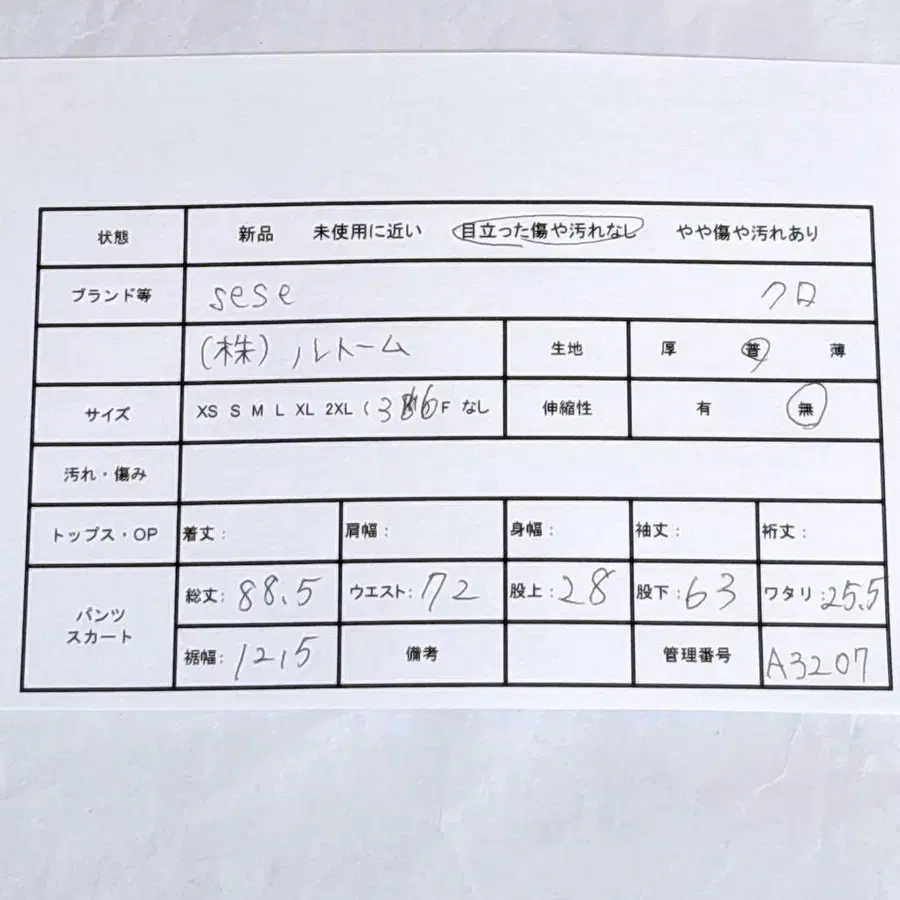 状態 新品 未使用に近い 目立った傷や汚れなし やや傷や汚れあり
ブランド等 sese クロ
(株)ルトーム 生地 厚 普 薄
サイズ XS S M L XL 2XL ( 36 F なし 伸縮性 有 無
汚れ・傷み
トップス・OP 着丈: 肩幅: 身幅: 袖丈: 裄丈:
パンツ スカート 総丈: 88.5 ウエスト: 72 股上: 28 股下: 63 ワタリ: 25.5
裾幅: 12.5 備考 管理番号 A3207